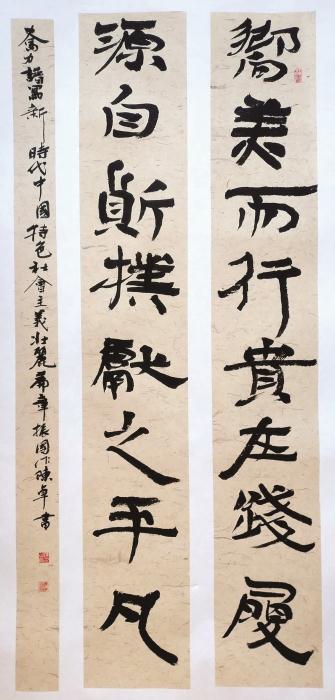 嚮美而行貴在踐履
源自質樸獻之平凡
奮力譜寫新時代中國特色社會主義壯麗篇章振國作陳卓書